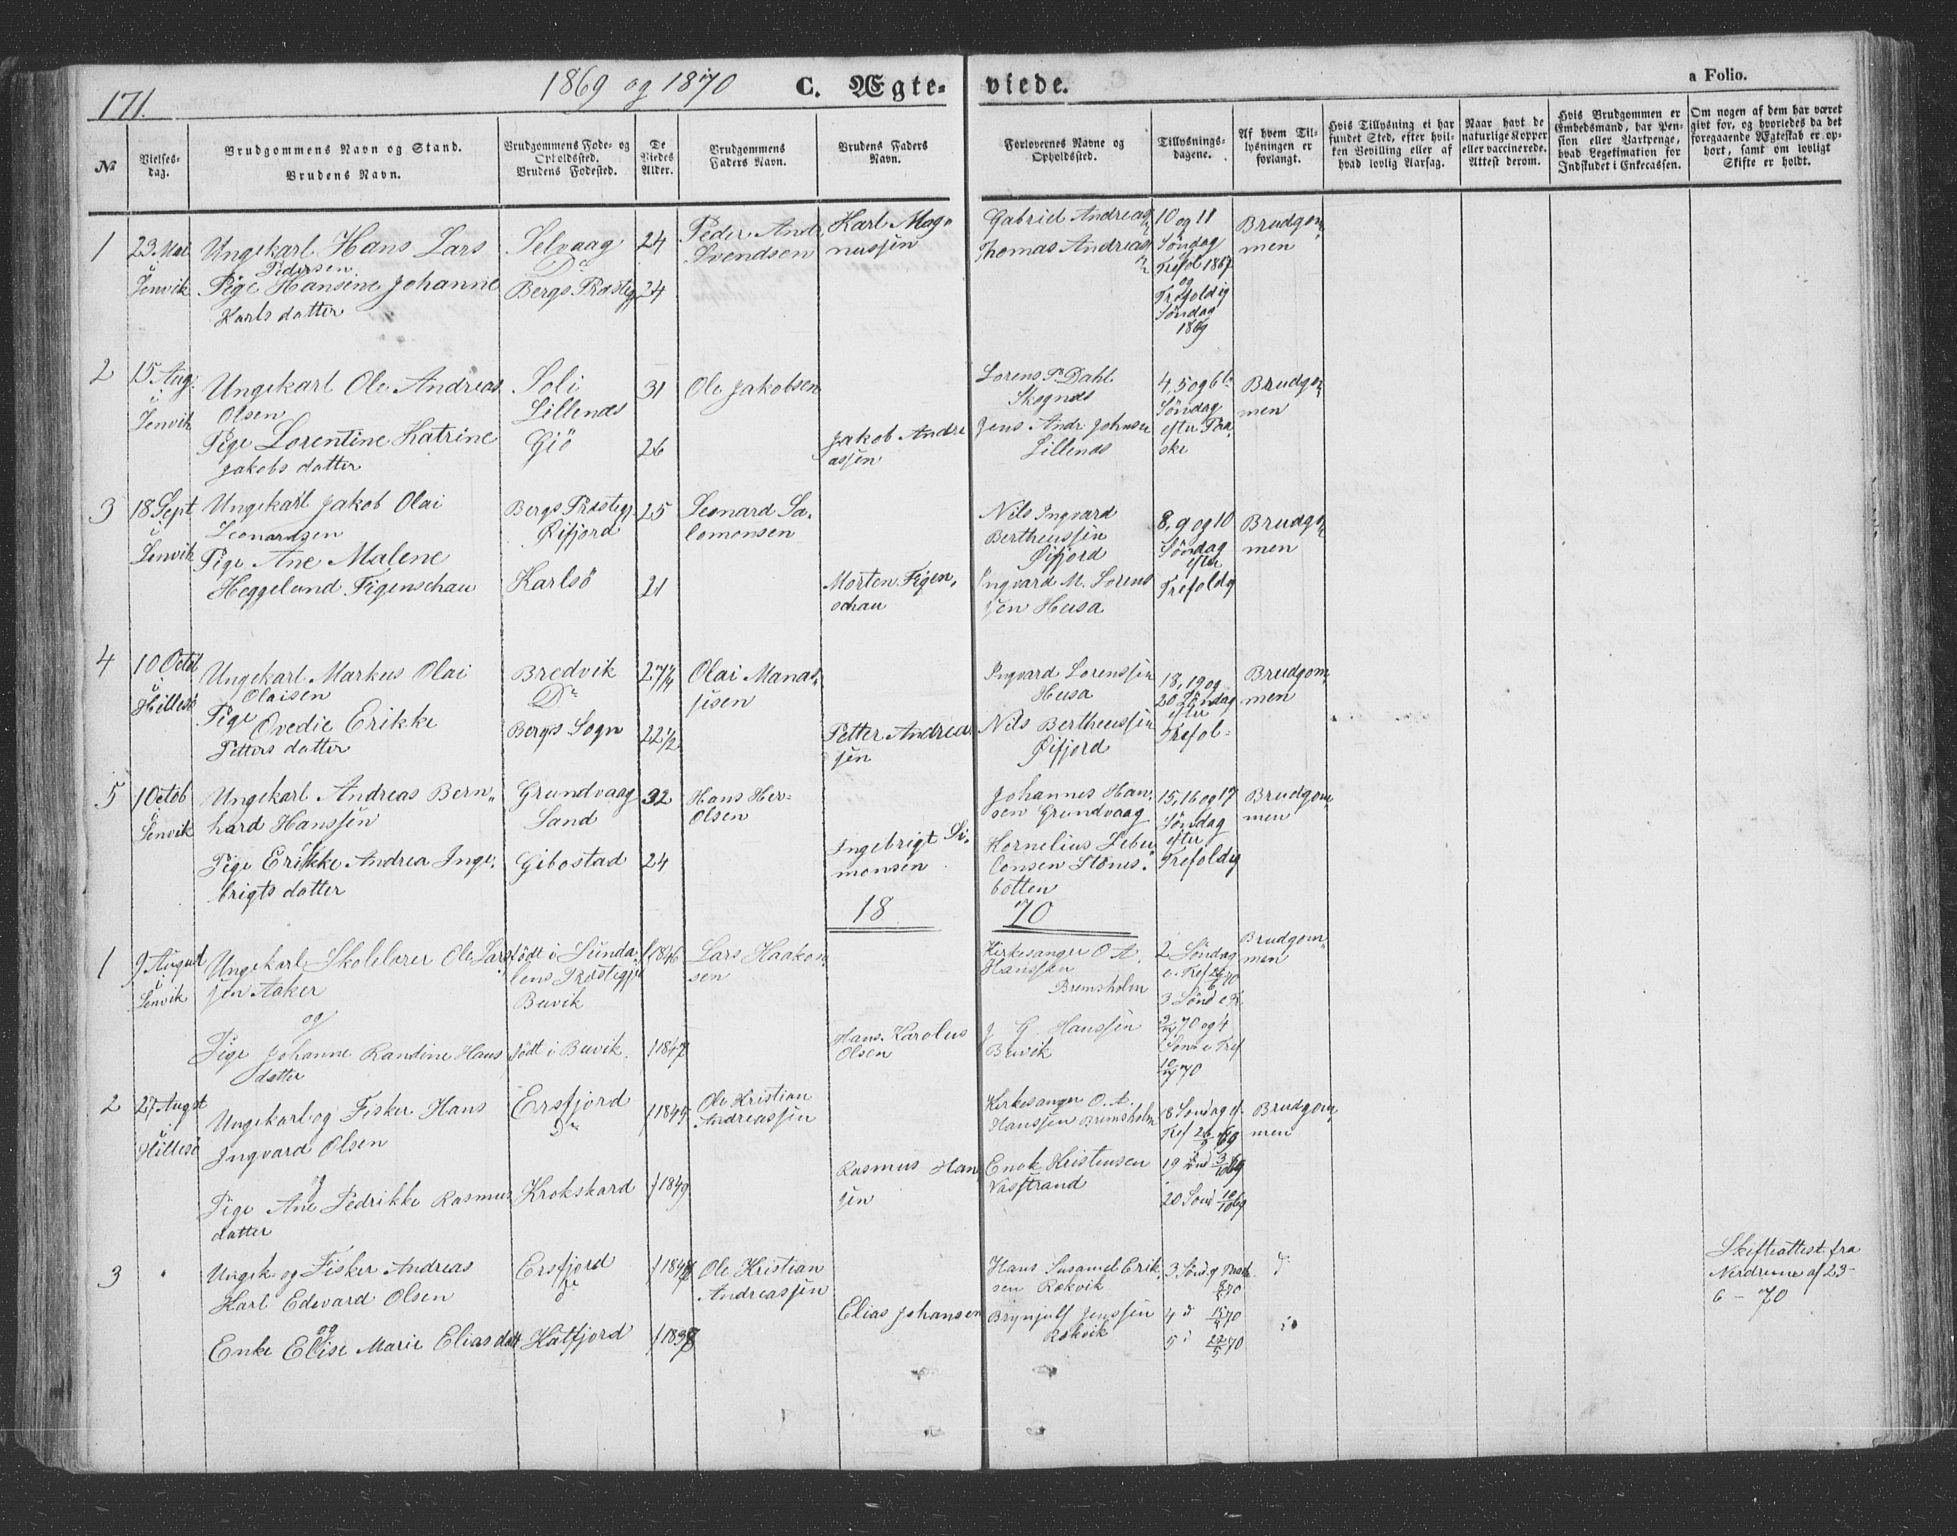 171.
1869 og 1870
C. Ægteviede.
a Folio.
No
Vielsesdag.
Brudgommens Navn og Stand.
Brudens Navn.
Brudgommens Føde- og Opholdssted.
Brudens Fødested.
De Viedes Alder.
Brudgommens Faders Navn.
Brudens Faders Navn.
Forlovernes Navne og Opholdssted.
Tillysningsdagene.
Af hvem Tillysningen er forlangt.
Hvis Tillysning ei har fundet Sted, efter hvilken Bevilling eller af hvad lovlig Aarsag.
Naar havt de naturlige Kopper eller vaccinerede. Attest derom.
Hvis Brudgommen er Embedsmand, har Pension eller Vartpenge, hvad Legitimation for Indskudet i Enkecassen.
Om nogen af dem har været givt for, og hvorledes da det foregaaende Ægteskab er ophørt, samt om lovligt Skifte er holdt.
1
23 Mai
i
Lenvik
Ungekarl Hans Lars
Pedersen
Pige Hansine Johanne
Karlsdatter
Selvaag
Do
Bergs Præstegj
24
24
Peder Andr
Svendsen
Karl Mag-
nussen
Gabriel Andreas
Thomas Andreas
10 og 11
Søndag
Trefol 1867
og
Trefoldig
Søndag
1869
Brudgom-
men
2
15 Aug
i
Lenvik
Ungekarl Ole Andreas
Olsen
Pige Lorentine Katrine
Jakobsdatter
Soli
Lillenes
Giö
31
26
Ole Jakobsen
Jakob Andre
assen
Lorens P Dahl
Skognes
Jens Andr Johnsen
Lillenes
4, 5 og 6te
Søndag
efter Paa-
ske
Brudgom-
men
3
18 Sept
i
Lenvik
Ungekarl Jakob Olai
Leonardsen
Pige Ane Malene
Heggelund Figenschau
Bergs Præstegj
Øifjord
Karlsö
25
21
Leonard Sa-
lomonsen
Morten Figen-
schau
Nils Ingvard
Bertheussen
Øifjord
Ingvard M. Lorens
sen Husa
8, 9 og 10
Søndag
efter
Trefoldg
Brudgom-
men
4
10 Octob
i
Hillesö
Ungekarl Markus Olai
Olaisen
Pige Ovedie Erikke
Petters datter
Bredvik
Do
Bergs Sogn
27 1/4
22 1/2
Olai Manas-
sesen
Petter Andrea
sen
Ingvard Lorenssen
Husa
Nils Bertheussen
Øifjord
18, 19 og
20 Søndag
efter
Trefol-
Brudgom-
men
5
1 Octob
i
Lenvik
Ungekarl Andreas Bern-
hard Hanssen
Pige Erikke Andrea Inge-
brigts datter
Grundvaag
Sand
Gibostad
32
24
Hans Her-
Olsen
Ingebrigt Si-
monsen
Johannes Han-
sen Grundvaag
Kornelius Zeba-
lonsen Stønes-
botten
15, 16 og 17
Søndag
efter
Trefoldig
Brudgom-
men
18
70
1
9 August
i
Lenvik
Ungekarl Skolelærer Ole Lars
sen Aaker
og
Pige Johanne Randine Hans
datter
født i Sunda-
lens Præstegje
Buvik
født i Buvik
f 1846
f 1847
Lars Haakon-
sen
Hans Karolus
Olsen
Kirkesanger O A.
Hanssen
Bremsholm
J G. Hanssen
Buvik
2 Søndag
e. Tref 26/6 70
3 Sønd e Tr
3/7 70 og 4
Sønd e Tref
10/7 70
Brudgom-
men
2
27 Augst
i
Hillesö
Ungekarl og Fisker Hans
Ingvard Olsen
og
Pige Ane Fedrikke Rasmus
datter
Ersfjord
Do
Krokskard
f 1849
f 1849
Ole Kristian
Andreassen
Rasmus Han
sen
Kirkesanger O. A.
Hanssen Bremsholm
Enok Kristensen
Vasstrand
18 Søndag ef.
Tref 26/9 69
19 Sønd 3/10 69
20 Sønd 10/10 69
Brudgom-
men
3
"
Ungk og Fisker Andreas
Karl Edvard Olsen
og
Enke Elise Marie Elias datt
Ersfjord
Do
Katfjord
f 1847
f 1838
Ole Kristian
Andreassen
Elias Johansen
Hans Susamel Erik-
sen Rekvik
Brynjulf Jenssen
Rekvik
3 Sønd. e Paask
8/5 70
4 d 15/5 70
5 d 22/5 70
d
Skifteattest fra
Nerdrum af 23-
6 - 70